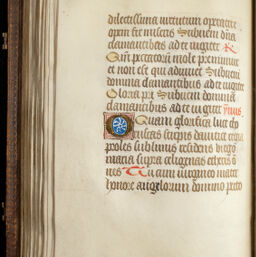 dilectissima virtutum operatrix
opem fer miseris Subveni dña
clamantibus ad te iugiter R
Cum peccatorū mole premimur
et non est qui adiuvet Subveni
domina clamantibus ad te iugiter
Gloria pri Subveni domina
clamantibus ad te iugiter
O Quam glorifica luce cho
ruscas stirpis davitice regia
proles sublimis residens virgo
maria supra celigenas etheris o
nes Tu cum virgineo mater
honore angelorum domino